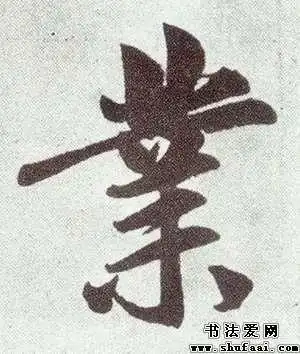 業
书法爱网
www.shufaai.com